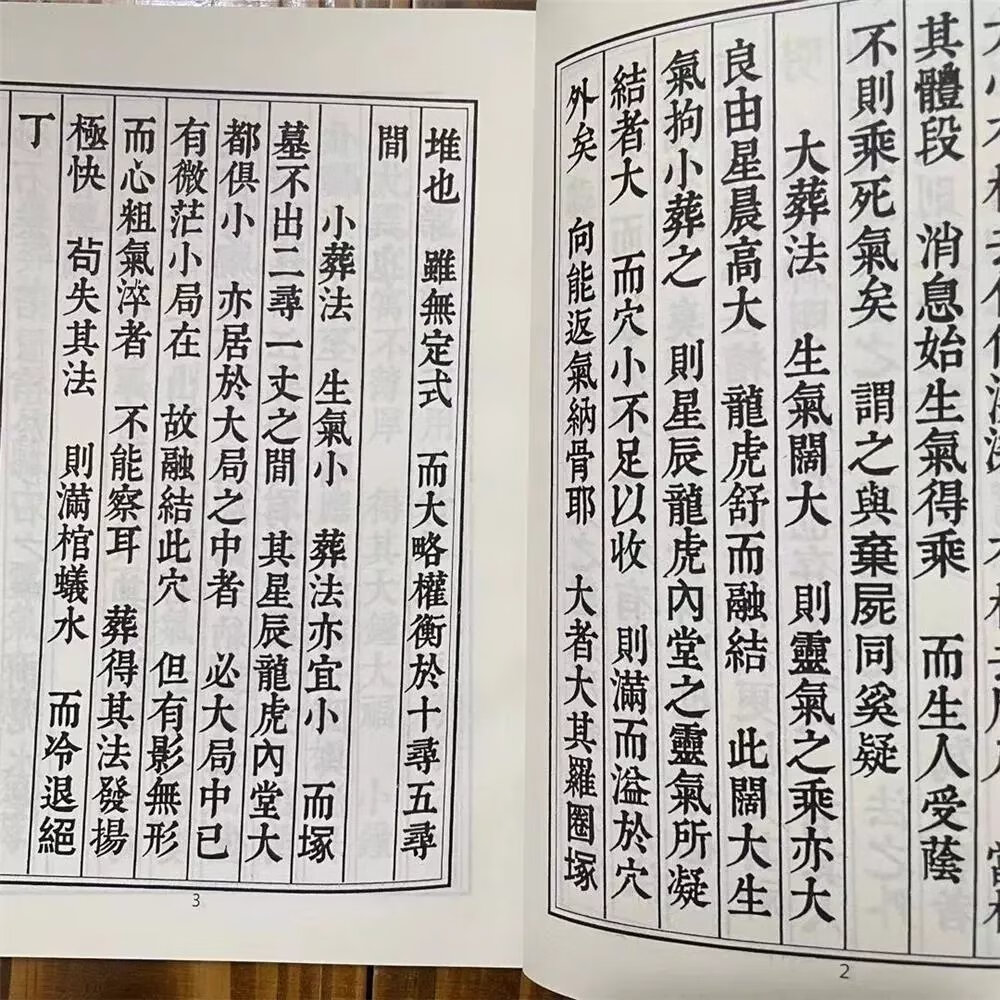 其體段 消息始生氣得乘 而生人受蔭
不則乘死氣矣 謂之與棄屍同奚疑
大葬法 生氣闊大 則靈氣之乘亦大
良由星晨高大 龍虎舒而融結 此闊大生
氣拘小葬之 則星辰龍虎內堂之靈氣所凝
結者大 而穴小不足以收 則滿而溢於穴
外矣 向能返氣納骨耶 大者大其羅圈塚
2
堆也 雖無定式 而大略權衡於十尋五尋
間
小葬法 生氣小 葬法亦宜小 而塚
墓不出二尋一丈之間 其星辰龍虎內堂大
都俱小 亦居於大局之中者 必大局中已
有微茫小局在 故融結此穴 但有影無形
而心粗氣淬者 不能察耳 葬得其法發揚
極快 茍失其法 則滿棺蟻水 而冷退絕
丁
3